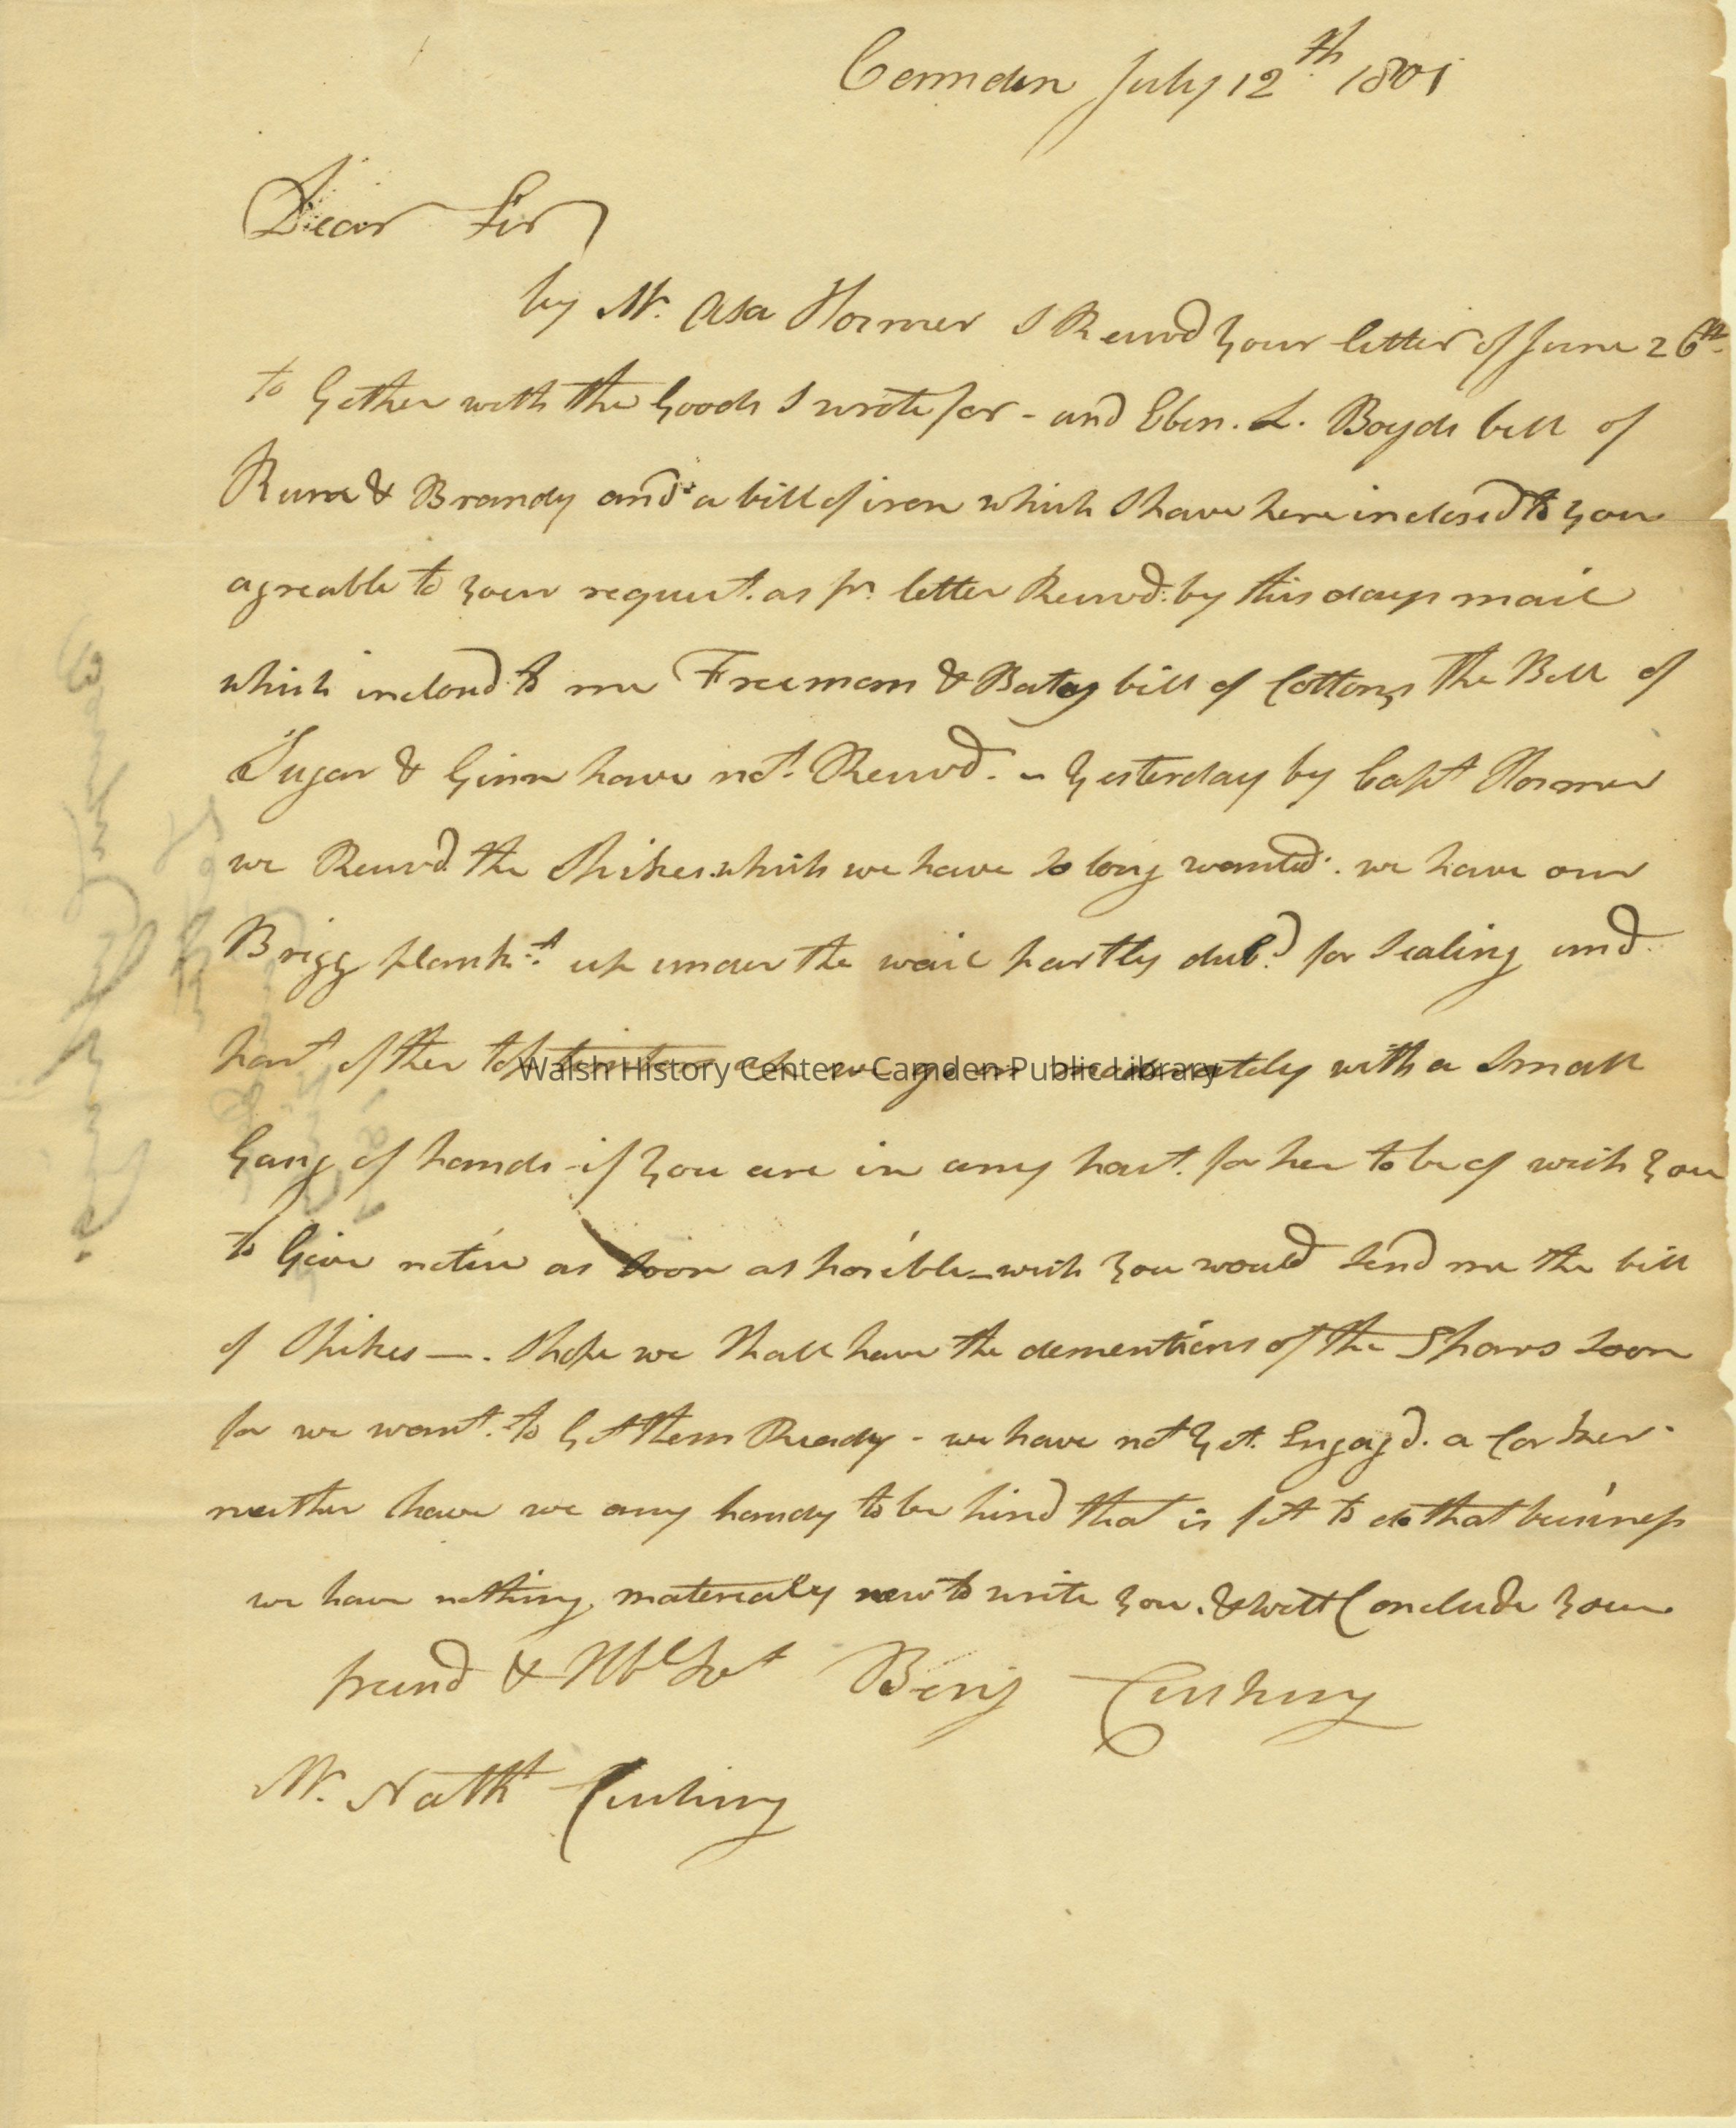 Camden July 12th 1801
Dear Sir
by Mr. Asa Hosmer I Receivd your letter of June 26th.
to Gether with the Goods I wrote for - and Eben. L. Boyds bill of
Rum & Brandy and a bill of iron which I have here inclosed to you
agreable to your request. as pr. letter Receivd. by this days mail
which inclosd to me Freemam & Batey bill of Cottons The Bill of
Sugar & Ginn have not. Receivd. - Yesterday by Capt Hosmer
we Receivd. the Spikes which we have so long wanted. we have our
Brigg plank.t up under the wail partly dub.d for Sealing and
part of her top with a Small
Gang of hands - if you are in any hast. for her to be of wish you
to Give notice as Soon as posible - wish you would send me the bill
of Spikes —. I hope we shall have the dementions of the Spars soon
for we want. to Get them Ready - we have not yet. Engagd. a Corker.
neither have we any handy to be hird that is fit to do that business
we have nothing materially new to write you. & will Conclude your
freind & Hble Sert Benj Cushing
Mr. Nathl Cushing
Walsh History Center - Camden Public Library